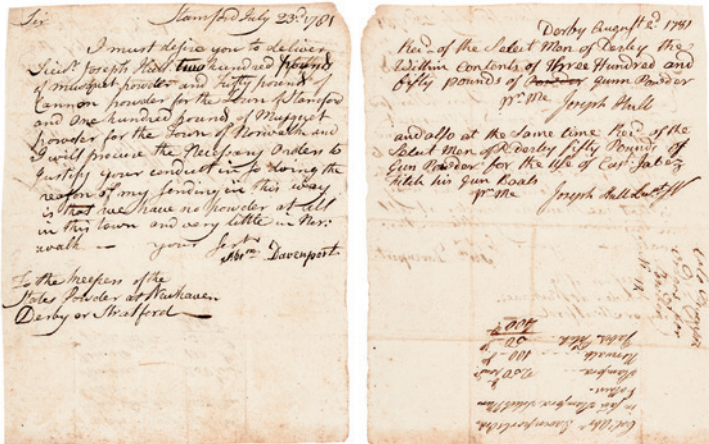 Sir Stamford July 23d. 1781
I must desire you to deliver
Lieut. Joseph Hull two hundred pounds
of musquet powder and fifty pounds of
Cannon powder for the Town of Stamford
and One hundred pounds of Musquet
powder for the Town of Norwalk and
I will procure the Necessary Orders to
Justify your conduct in so doing the
reason of my sending in this way
is that we have no powder at all
in this town and very little in Nor:
walk — your Servt.
Abrm. Davenport
To the keepers of the
States Powder at Newhaven
Derby or Stratford
Derby August 2d. 1781
Recd. of the Select Men of Derby the
Within Contents of three Hundred and
fifty pounds of Powder Gunn Powder
pr. Me Joseph Hull
and also at the Same time Recd. of the
Select Men of Derby fifty Pounds of
Gun Powder for the Use of Capt. Jabez
Fitch his Gun Boats
pr. Me Joseph Hull Leut.
Stamford 250
Norwalk 100
Jabez Fitch 50
400